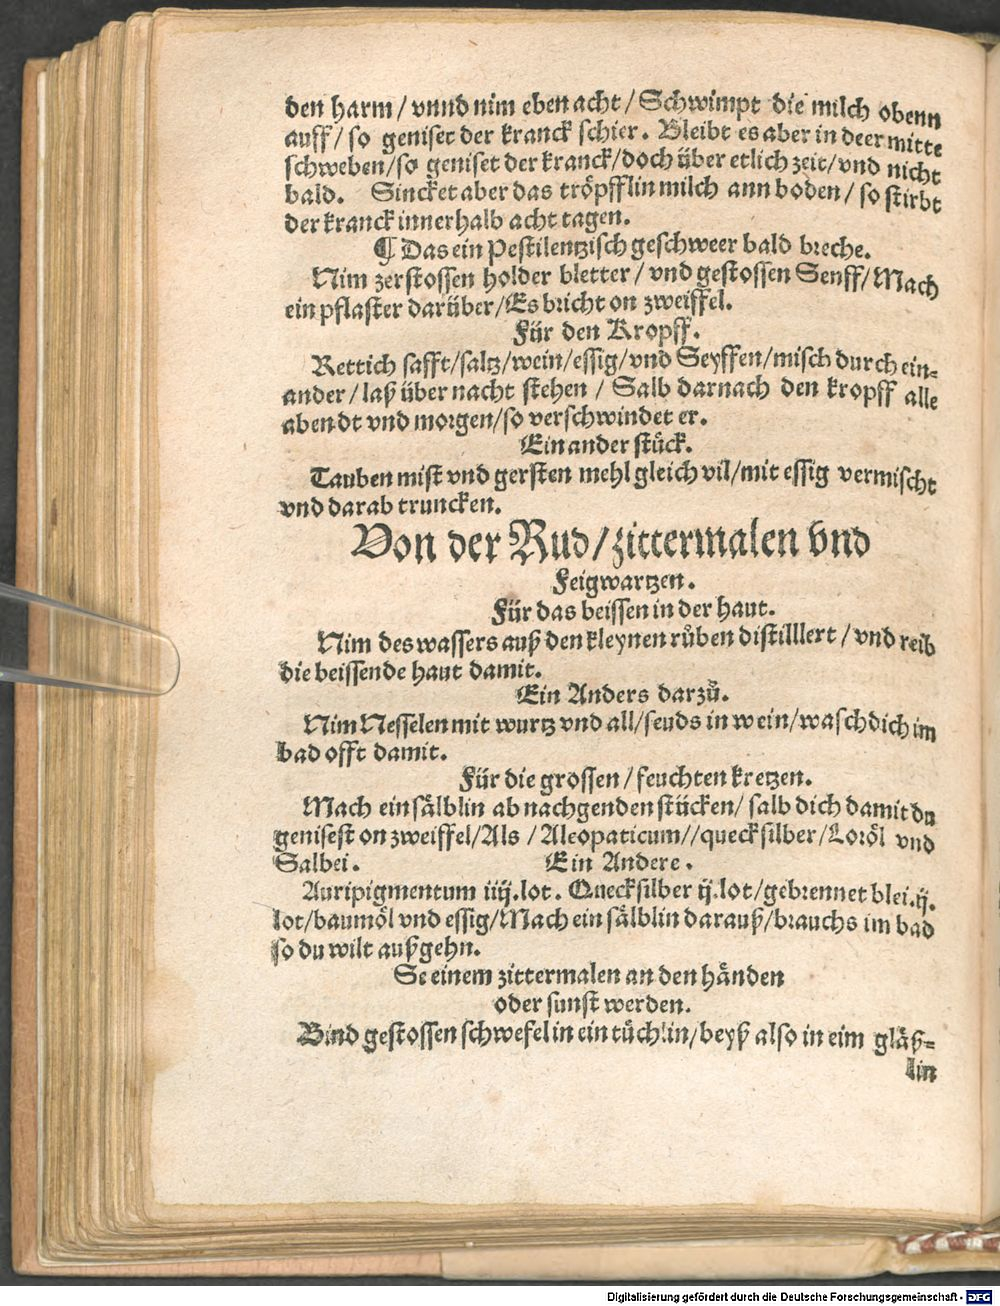 den harm / vnnd nim eben acht / Schwimpt die milch obenn
auff / so geniset der kranck schier. Bleibt es aber in deer mitte
schweben/so geniset der kranck/doch über etlich zeit/vnd nicht
bald. Sincket aber das tröpfflin milch ann boden / so stirbt
der kranck innerhalb acht tagen.
¶ Das ein Pestilentzisch geschweer bald breche.
Nim zerstossen holder bletter / vnd gestossen Senff/Mach
ein pflaster darüber/Es bricht on zweiffel.
Für den Kropff.
Rettich safft/saltz/wein/essig/vnd Seyffen/misch durch ein-
ander / laß über nacht stehen / Salb darnach den kropff alle
abendt vnd morgen/so verschwindet er.
Ein ander stück.
Tauben mist vnd gersten mehl gleich vil/mit essig vermischt
vnd darab truncken.
Von der Rud/zittermalen vnd
Feigwartzen.
Für das beissen in der haut.
Nim des wassers auß den kleynen růben distilllert / vnd reib
die beissende haut damit.
Ein Anders darzů.
Nim Nesselen mit wurtz vnd all/seuds in wein/wasch dich im
bad offt damit.
Für die grossen / feuchten kretzen.
Mach ein sälblin ab nachgenden stücken/ salb dich damit du
genisest on zweiffel/Als / Aleopaticum//quecksilber/Loröl vnd
Salbei. Ein Andere.
Auripigmentum iiij.lot. Quecksilber ij.lot/gebrennet blei.ij.
lot/baumöl vnd essig/Mach ein sälblin darauß/brauchs im bad
so du wilt außgehn.
So einem zittermalen an den händen
oder sunst werden.
Bind gestossen schwefel in ein tüchlin/beyß also in eim gläß-
lin
Digitalisierung gefördert durch die Deutsche Forschungsgemeinschaft - DFG